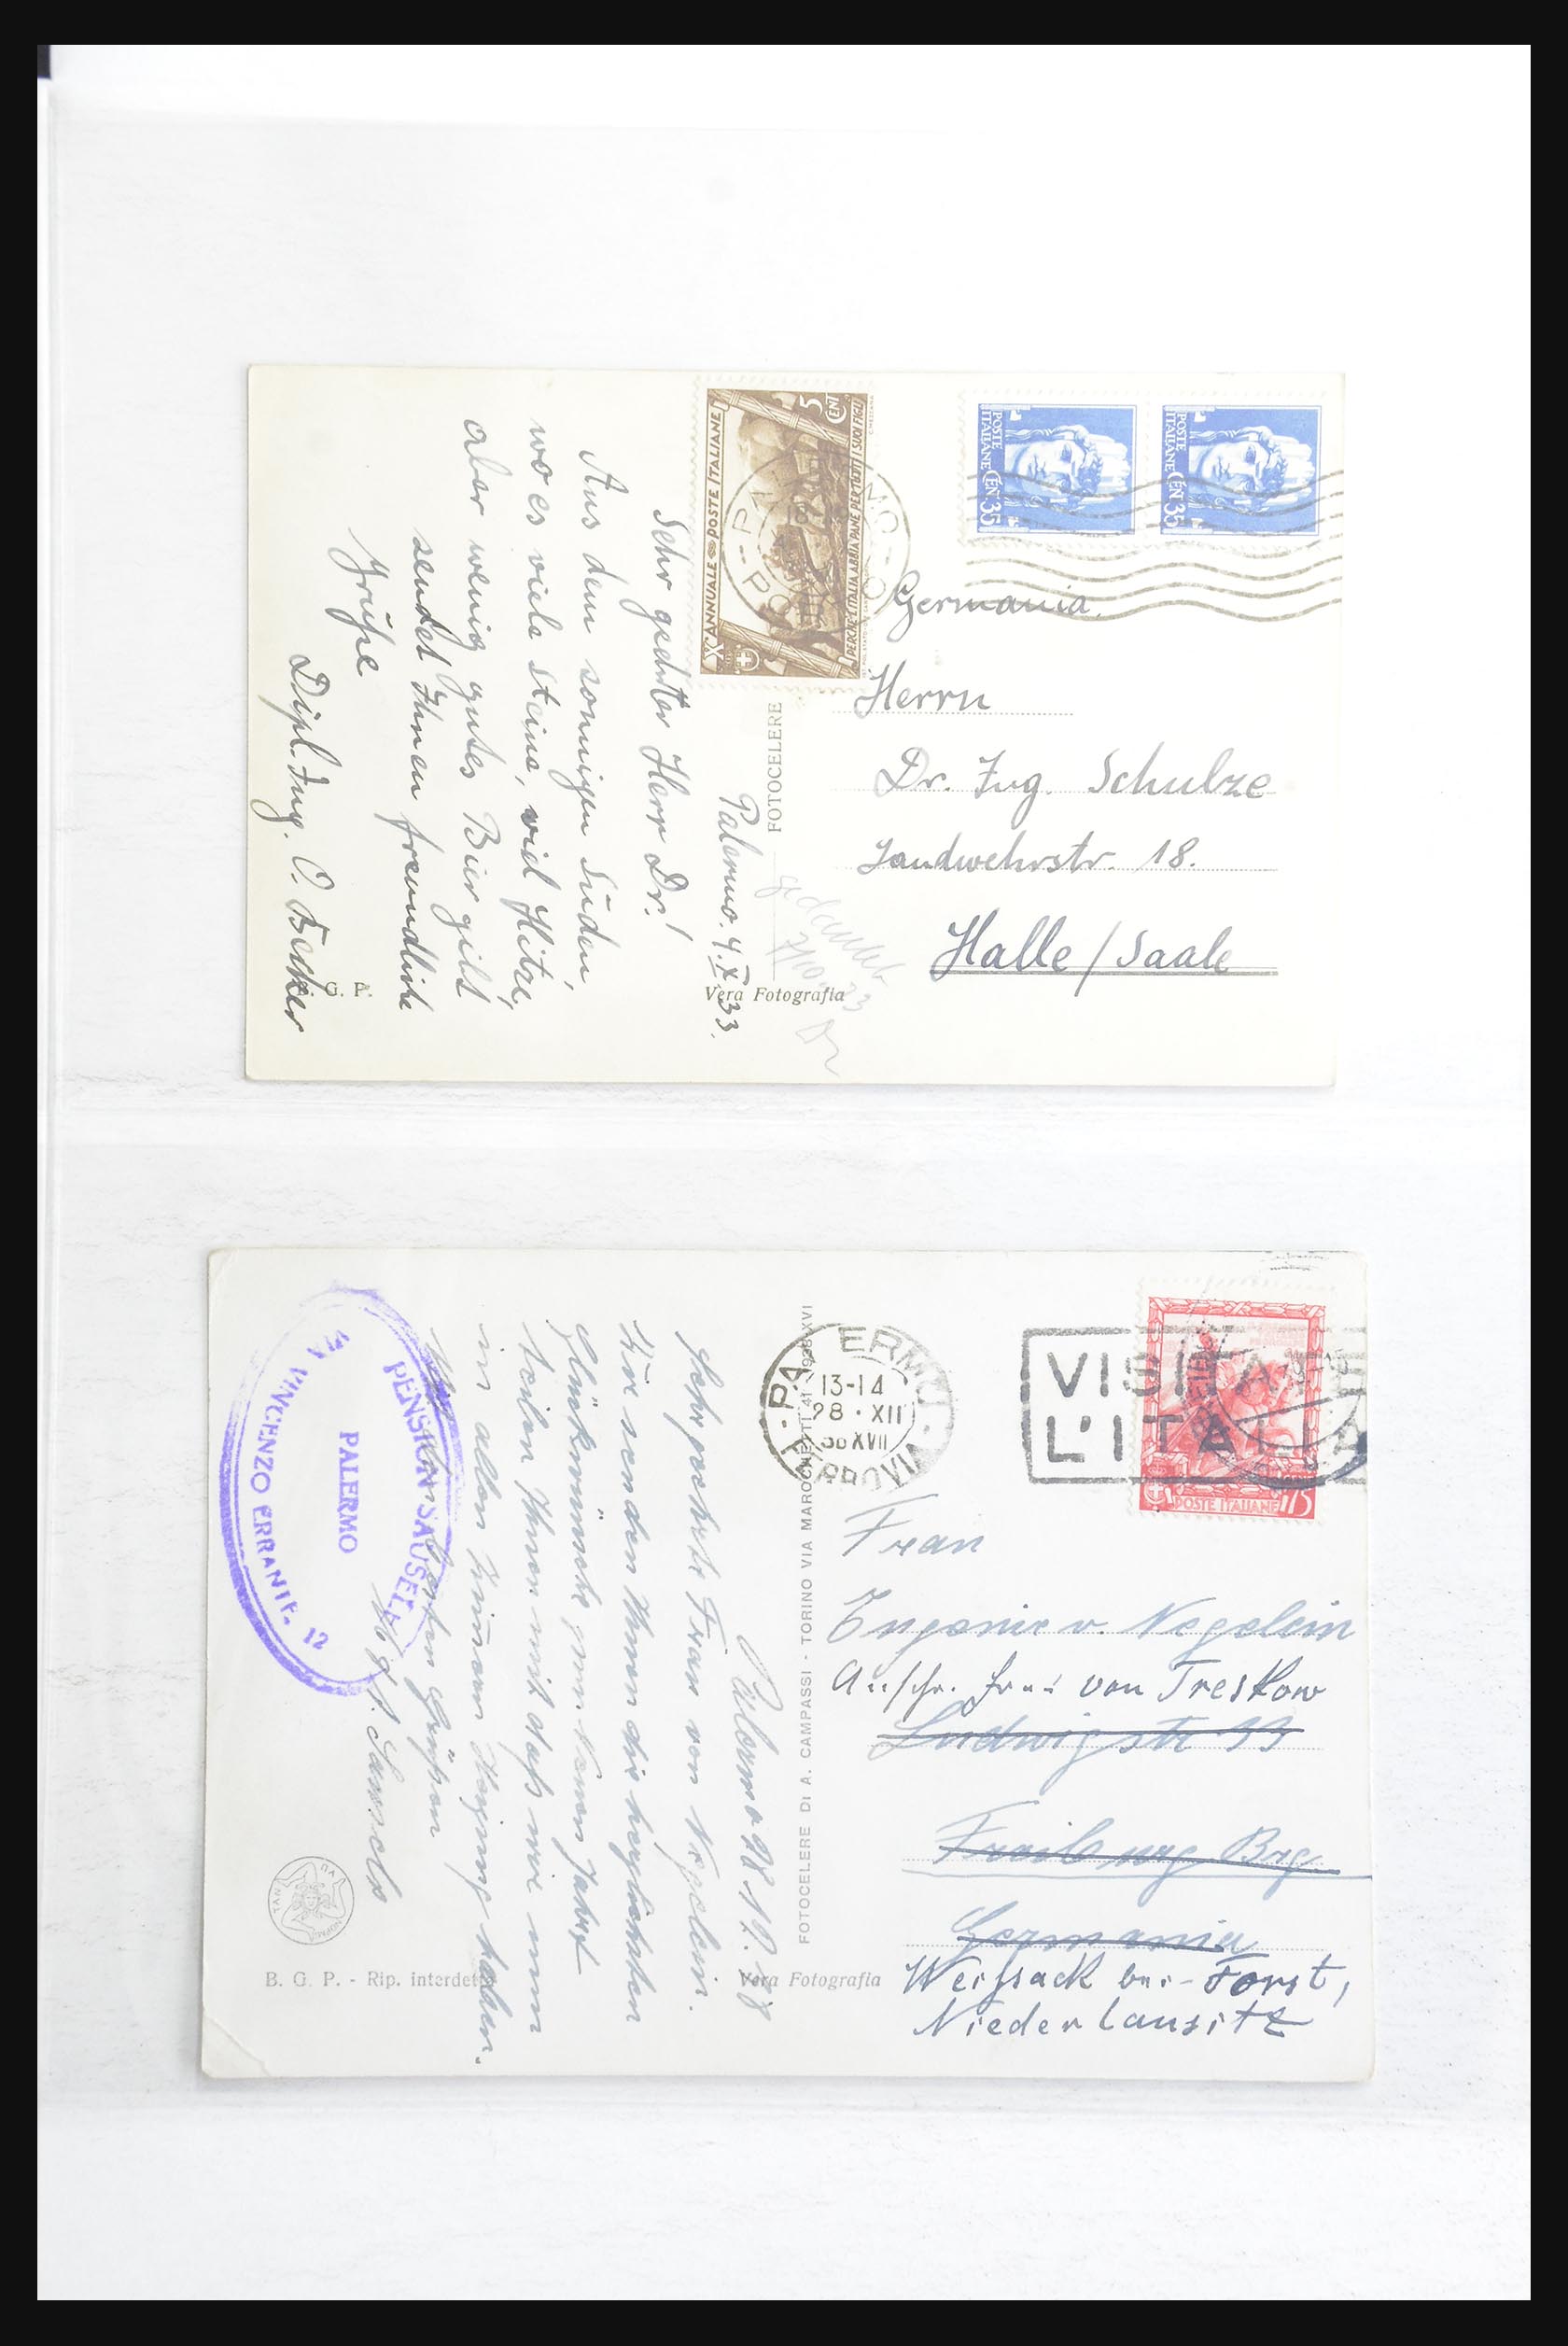 POSTE ITALIANE CENT 35
POSTE ITALIANE CENT 35
X° ANNUALE POSTE ITALIANE
5 CENT
PERCHE L'ITALIA ABBIA PANE PER TUTTI I SUOI FIGLI
PALERMO
Germania.
Herrn
Dr. Ing. Schulze
Landwehrstr. 18.
Halle / Saale
FOTOCELERE
Vera Fotografia
G. P.
Palermo. 4.X.33.
Sehr geehrter Herr Dr.!
Aus dem sonnigen Süden,
wo es viele Steine, viel Hitze,
aber wenig gutes Bier gibt
sendet Ihnen freundliche
Grüße
Dipl. Ing. O. Becker
VISITATE
L'ITALIA
POSTE ITALIANE 75
PALERMO
13-14
28 · XII
38 XVII
FERROVIA
Frau
Eugenie v. Negelein
Anschr. Frau von Treskow
Ludwigstr 33
Freiburg Brg
Germania
Weissack bei Forst,
Niederlausitz
FOTOCELERE DI A. CAMPASSI - TORINO VIA MAROCHETTI 41 - 1938-XVI
Vera Fotografia
B. G. P. - Rip. interdetta
Palermo 28 12. 38
Sehr geehrte Frau von Negelein.
Wir senden Ihnen die herzlichsten
Glückwünsche zum neuen Jahr &
teilen Ihnen mit daß wir nun
in allen Zimmern Heizung haben.
Mit den besten Grüßen
PENSION SAUSELE
PALERMO
VIA VINCENZO ERRANTE, 12